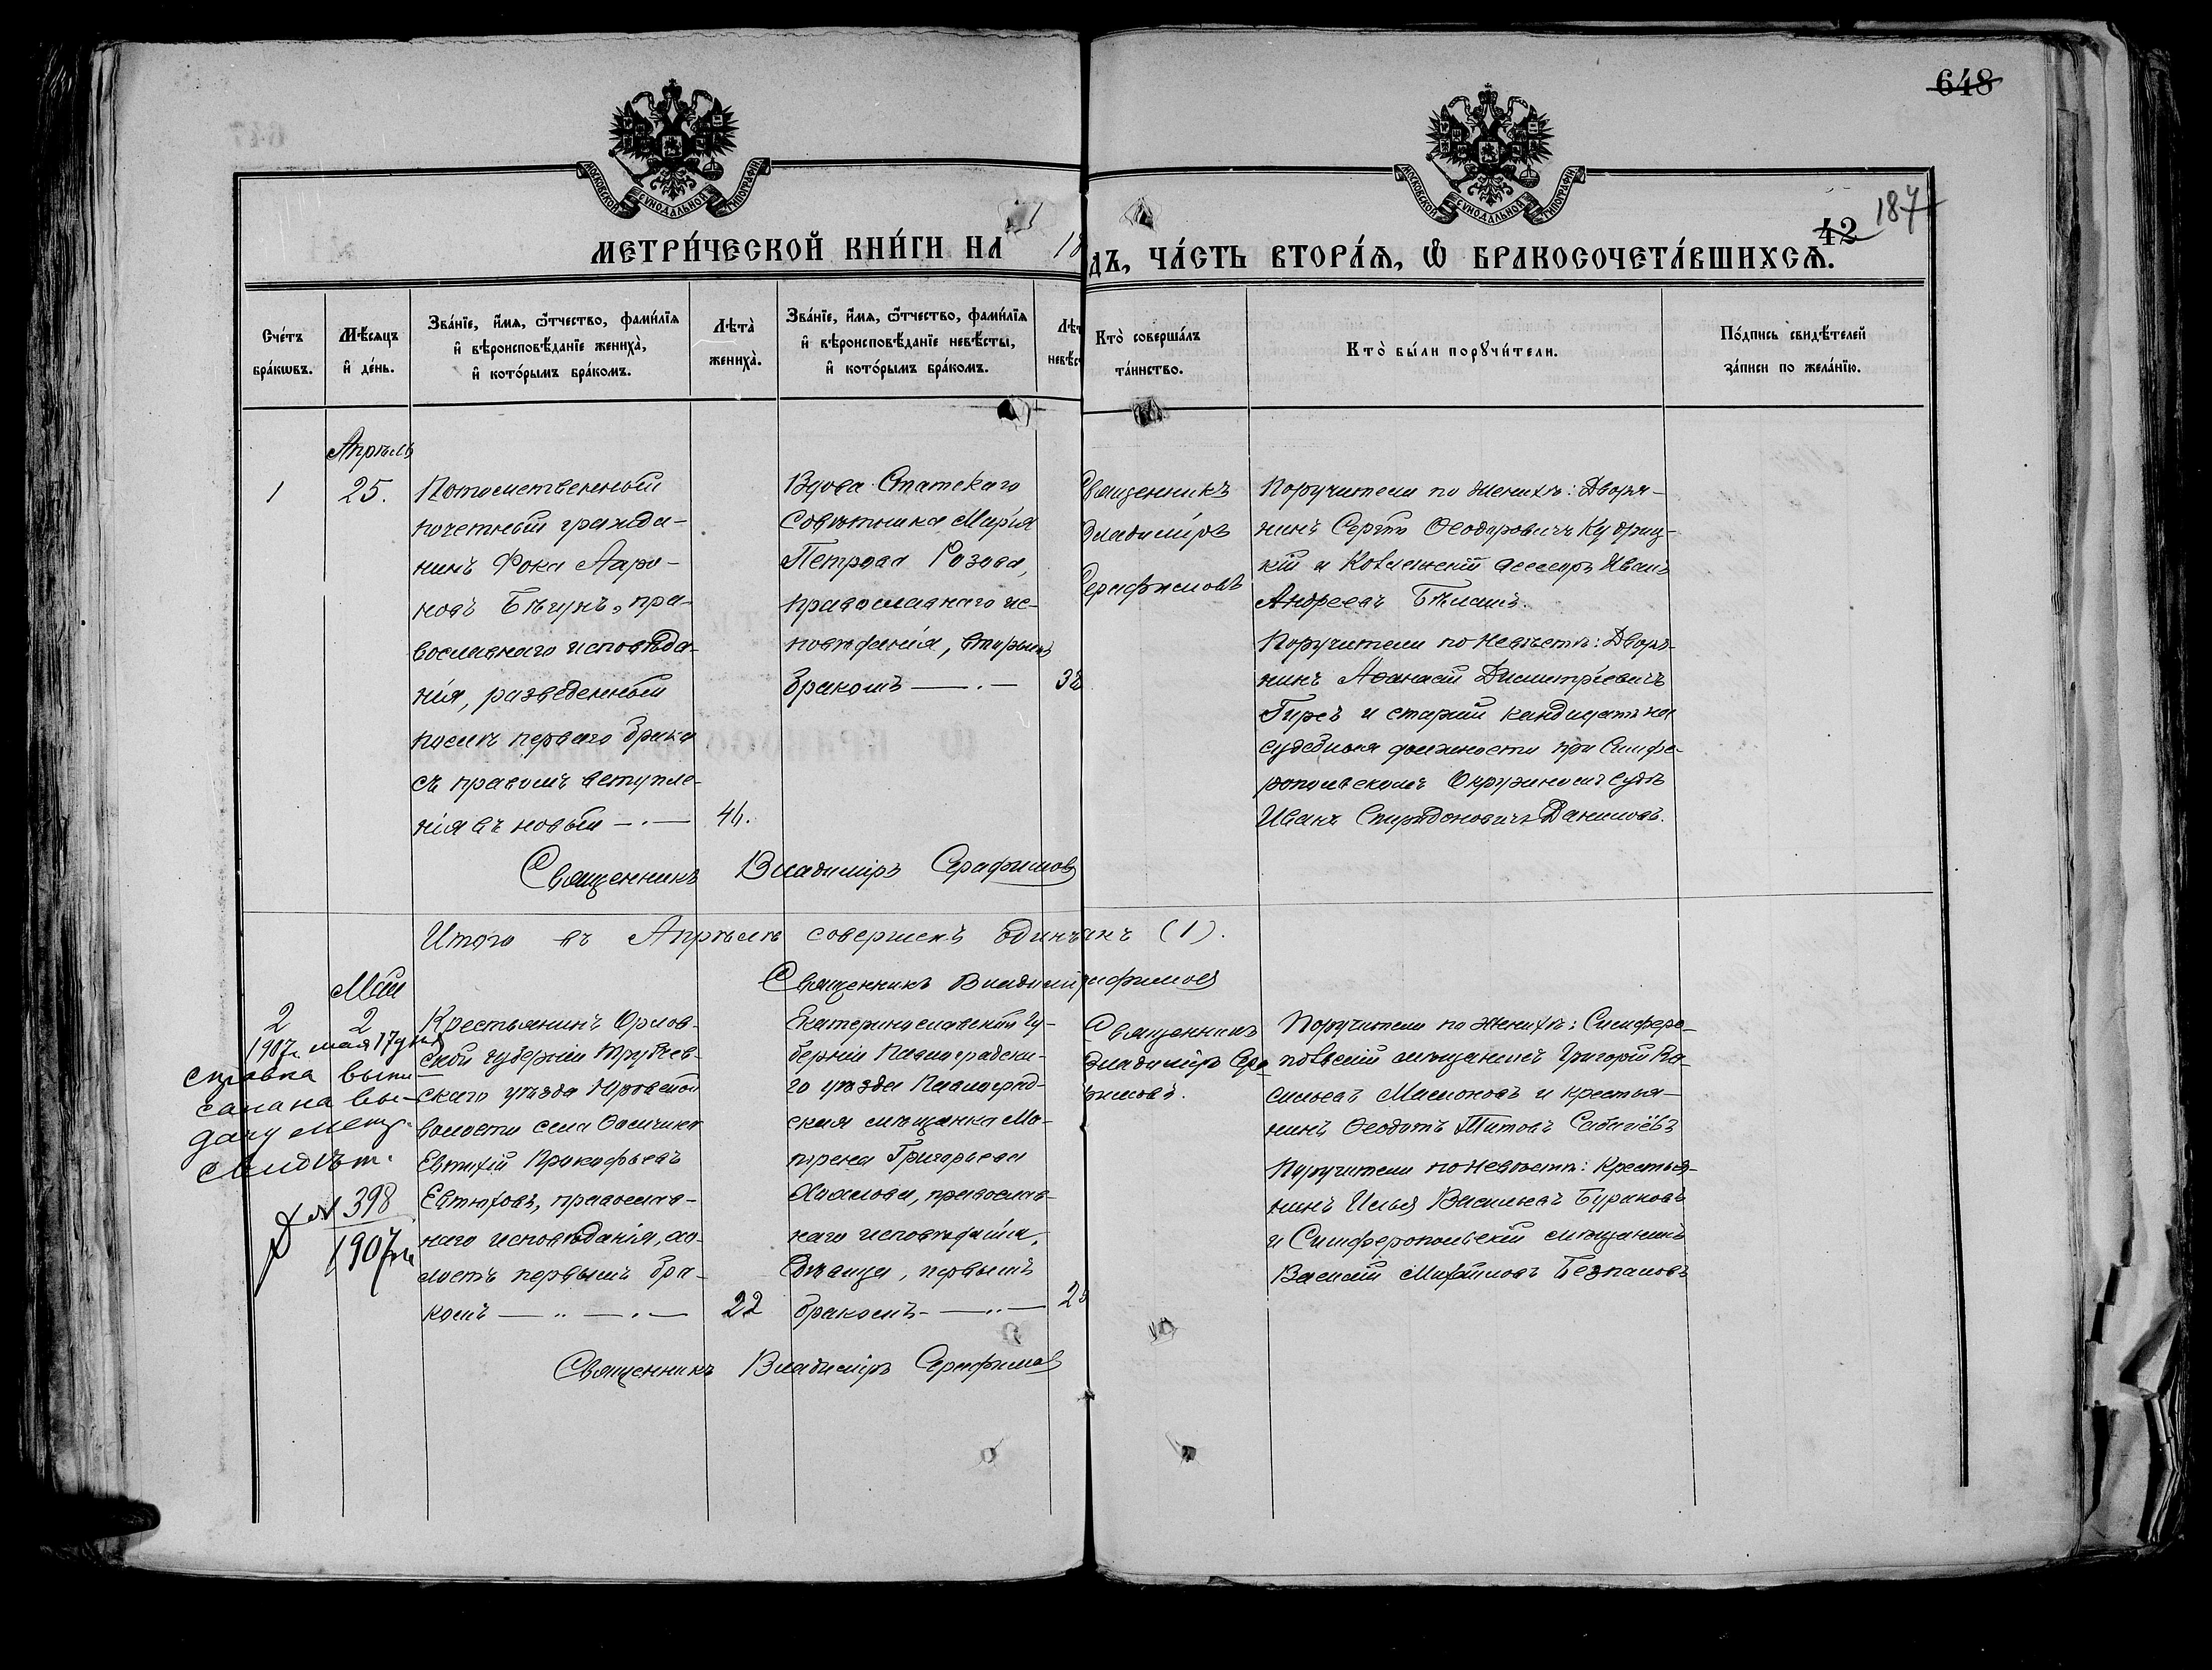 648
187
42
МОСКОВСКОЙ СѴНОДАЛЬНОЙ ТИПОГРАФІИ
МОСКОВСКОЙ СѴНОДАЛЬНОЙ ТИПОГРАФІИ
МЕТРИ́ЧЕСКОЙ КНИ́ГИ НА 18
ДЪ, ЧА́СТЬ ВТОРА́Ѧ, Ѽ БРАКОСОЧЕТА́ВШИХСѦ.
Сче́тъ
бра́кѡвъ.
Мѣ́сѧцъ
и҆ де́нь.
Зва́нїе, и҆́мѧ, ѻ҆́тчество, фами́лїѧ
и҆ вѣроисповѣ́данїе жениха̀,
и҆ кото́рымъ бра́комъ.
Лѣта̀
жениха̀.
Зва́нїе, и҆́мѧ, ѻ҆́тчество, фами́лїѧ
и҆ вѣроисповѣ́данїе невѣ́сты,
и҆ кото́рымъ бра́комъ.
Лѣт
невѣ́с
Кто̀ соверша́лъ
та́инство.
Кто̀ бы́ли порꙋчи́тели.
По́дпись свидѣ́телей
за́писи по жела́нїю.
Апрѣль
1
25.
Потомственный
почетный гражда-
нинъ Фока Ааро-
новъ Бѣгунъ, пра-
вославнаго исповѣда-
нія, разведенный
послѣ перваго брака
съ правомъ вступле-
нія въ новый
46.
Вдова Статскаго
Совѣтника Марія
Петрова Розова,
православнаго ис-
повѣданія, вторымъ
бракомъ
38
Священникъ
Владиміръ
Серафимовъ
Поручители по женихѣ: Дворя-
нинъ Сергѣй Ѳеодоровичъ Кудриц-
кій и Коллежскій асессоръ Иванъ
Андреевъ Бѣлашъ.
Поручители по невѣстѣ: Дворя-
нинъ Аѳанасій Димитріевичъ
Гирсъ и старшій кандидатъ на
судебныя должности при Симфе-
ропольскомъ Окружномъ судѣ
Иванъ Спиридоновичъ Даниловъ.
Священникъ Владиміръ Серафимовъ
Итого въ Апрѣлѣ совершенъ одинъ акъ (1).
Священникъ Владимі рафимовъ
Май
2
2
1907 г. мая 17 дня
справка выпи-
сана на вы-
дачу метр.
свидѣт.
№ 398
1907 г.
Крестьянинъ Орлов-
ской губерніи Трубчев-
скаго уѣзда Юровской
волости села
Евтихій Прокофьевъ
Евтюховъ, православ-
наго исповѣданія, хо-
лостъ первымъ бра-
комъ
22
Екатеринославской Гу-
берніи Павлоградска-
го уѣзда Павлоград-
ская мѣщанка Ма-
трена Григорьева
православ-
наго исповѣданія,
дѣвица, первымъ
бракомъ
2
Священникъ
Владиміръ Сера
фимовъ.
Поручители по женихѣ: Симферо-
польскій мѣщанинъ Григорій Ва-
сильевъ Мамоновъ и крестья-
нинъ Ѳеодотъ Титовъ
Поручители по невѣстѣ: Крестья-
нинъ Илья Васильевъ Бураковъ
и Симферопольскій мѣщанинъ
Василій Михайловъ Безпаловъ
Священникъ Владиміръ Серафимовъ